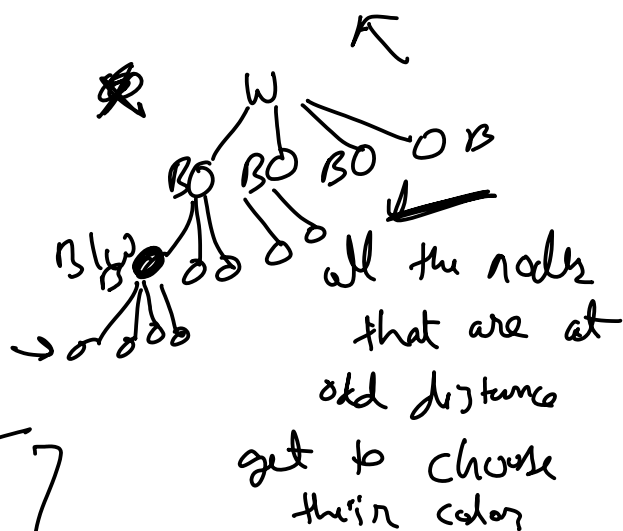 W
B B B B
B/W
B
all the nodes
that are at
odd distance
get to choose
their color
7